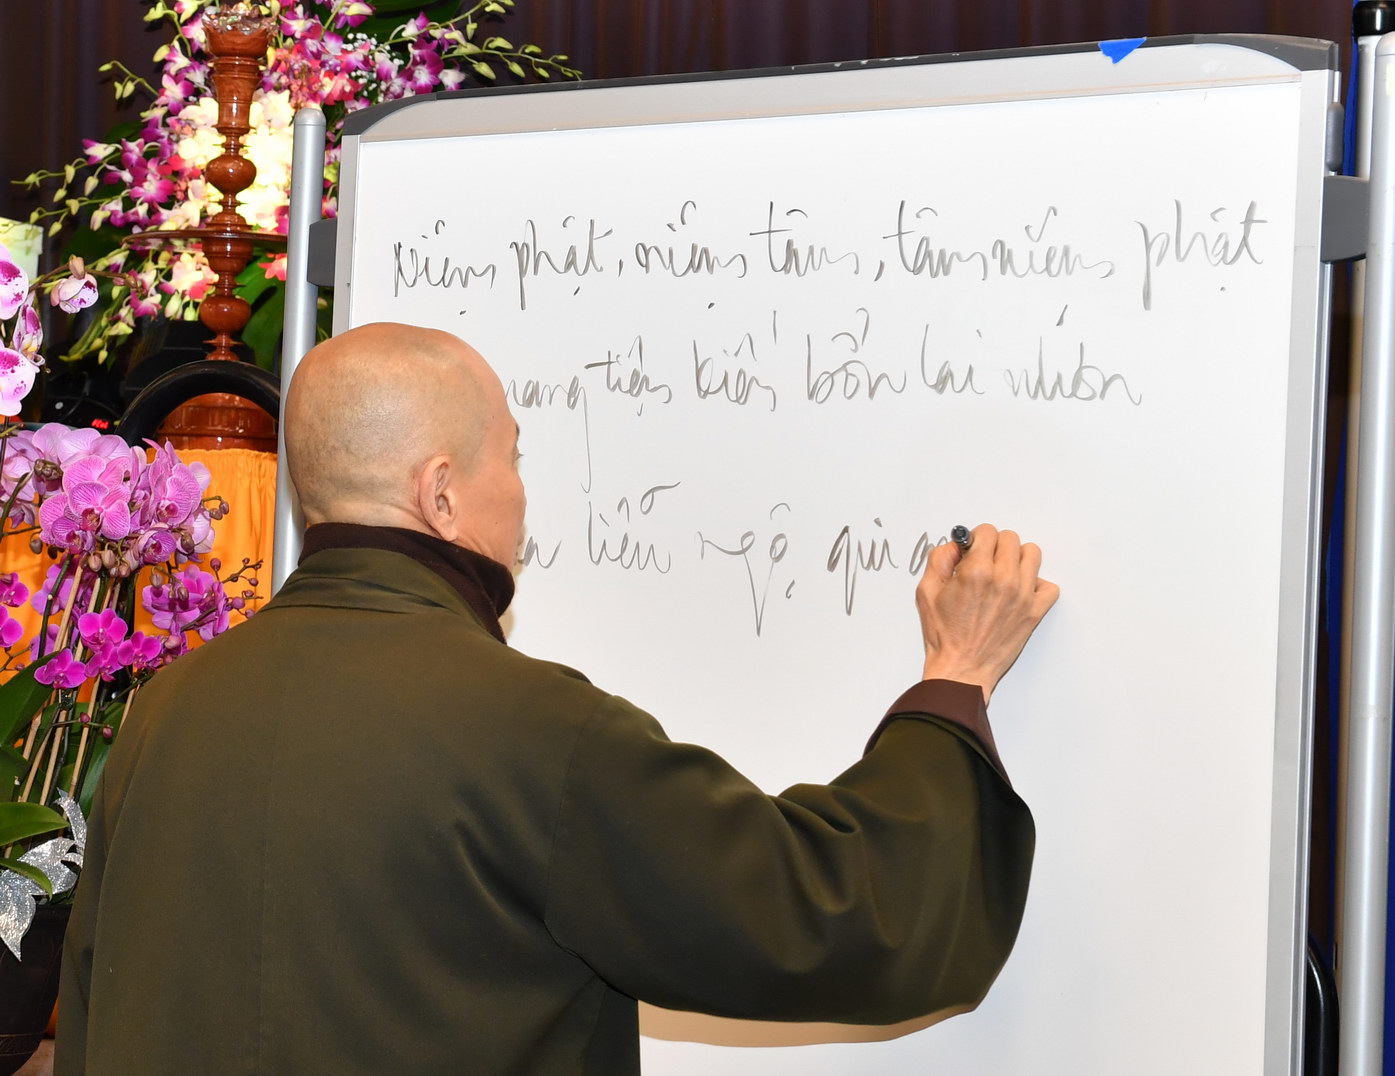 Niệm phật, niệm tâm, tâm niệm phật
mang tiện kiến bổn lai nhơn
liễu ngộ qui